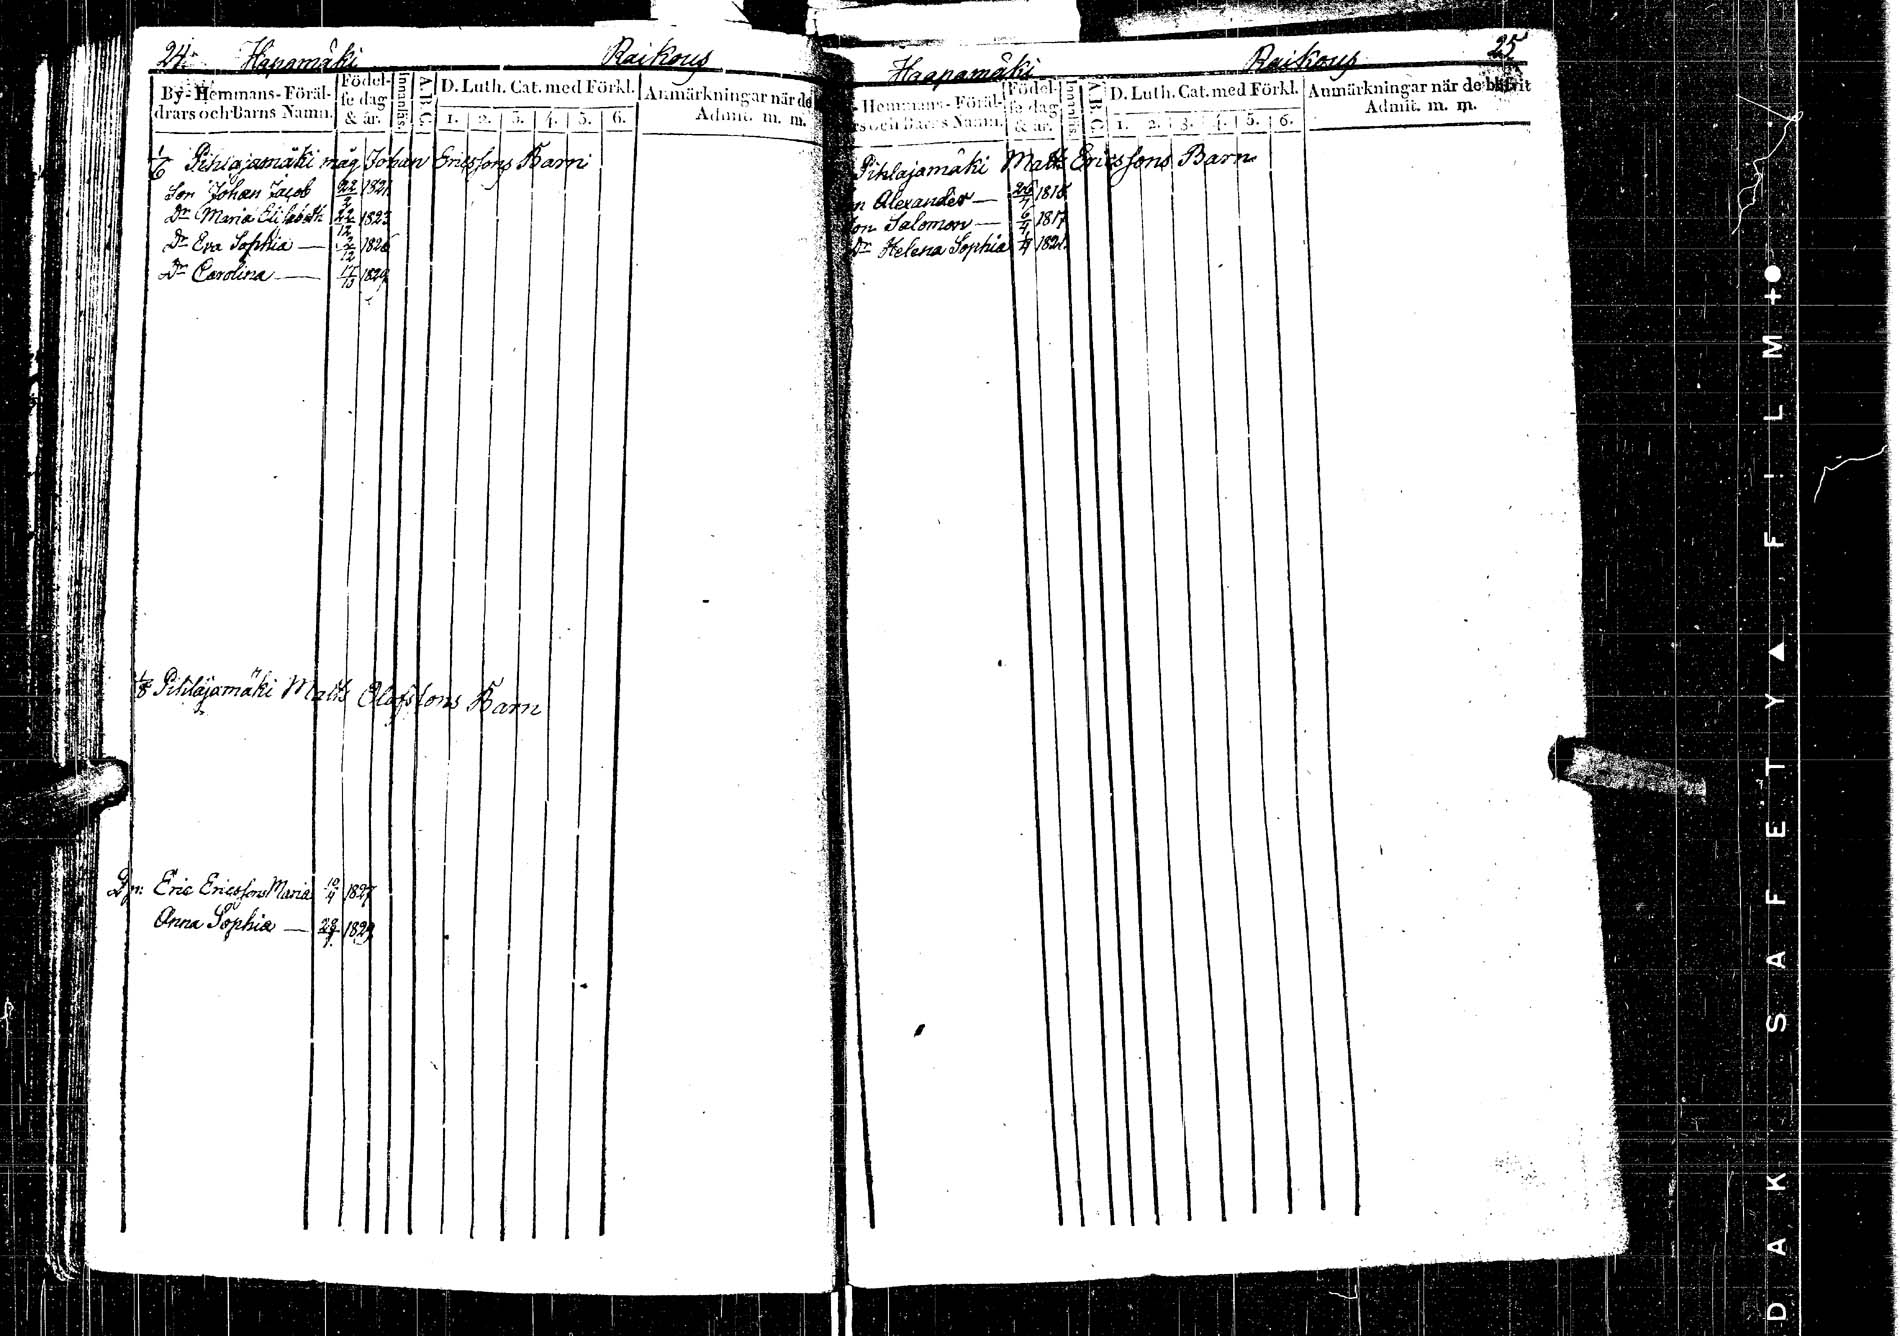 24. Hapamäki Raikous
By- Hemmans- Föräl-
drars och Barns Namn.
Födel-
se dag
& år.
Innanläs.
A.B.C.
D. Luth. Cat. med Förkl.
1. 2. 3. 4. 5. 6.
Anmärkningar när de
Admit. m. m.
Pihlajamäki måg Johan Ericssons Barn
Son Johan Jacob 22/2 1821
Dr Maria Elisabeth 22/12 1823
Dr Eva Sophia — 2/12 1826
Dr Carolina — 11/10 1829
1/8 Pihlajamäki Matts Olofssons Barn
Eric Ericssons Maria 10/4 1827
Anna Sophia — 1829
Haapamäki Raikous 25
Hemmans- Föräl-
s och Barns Namn.
Födel-
se dag
& år.
Innanläs.
A.B.C.
D. Luth. Cat. med Förkl.
1. 2. 3. 4. 5. 6.
Anmärkningar när de blifvit
Admit. m. m.
Pihlajamäki Matts Ericssons Barn
n Alexander — 1815
on Salomon — 6/4 1817
Dr Helena Sophia 1821
DAK SAFETY ▲ FILM +●